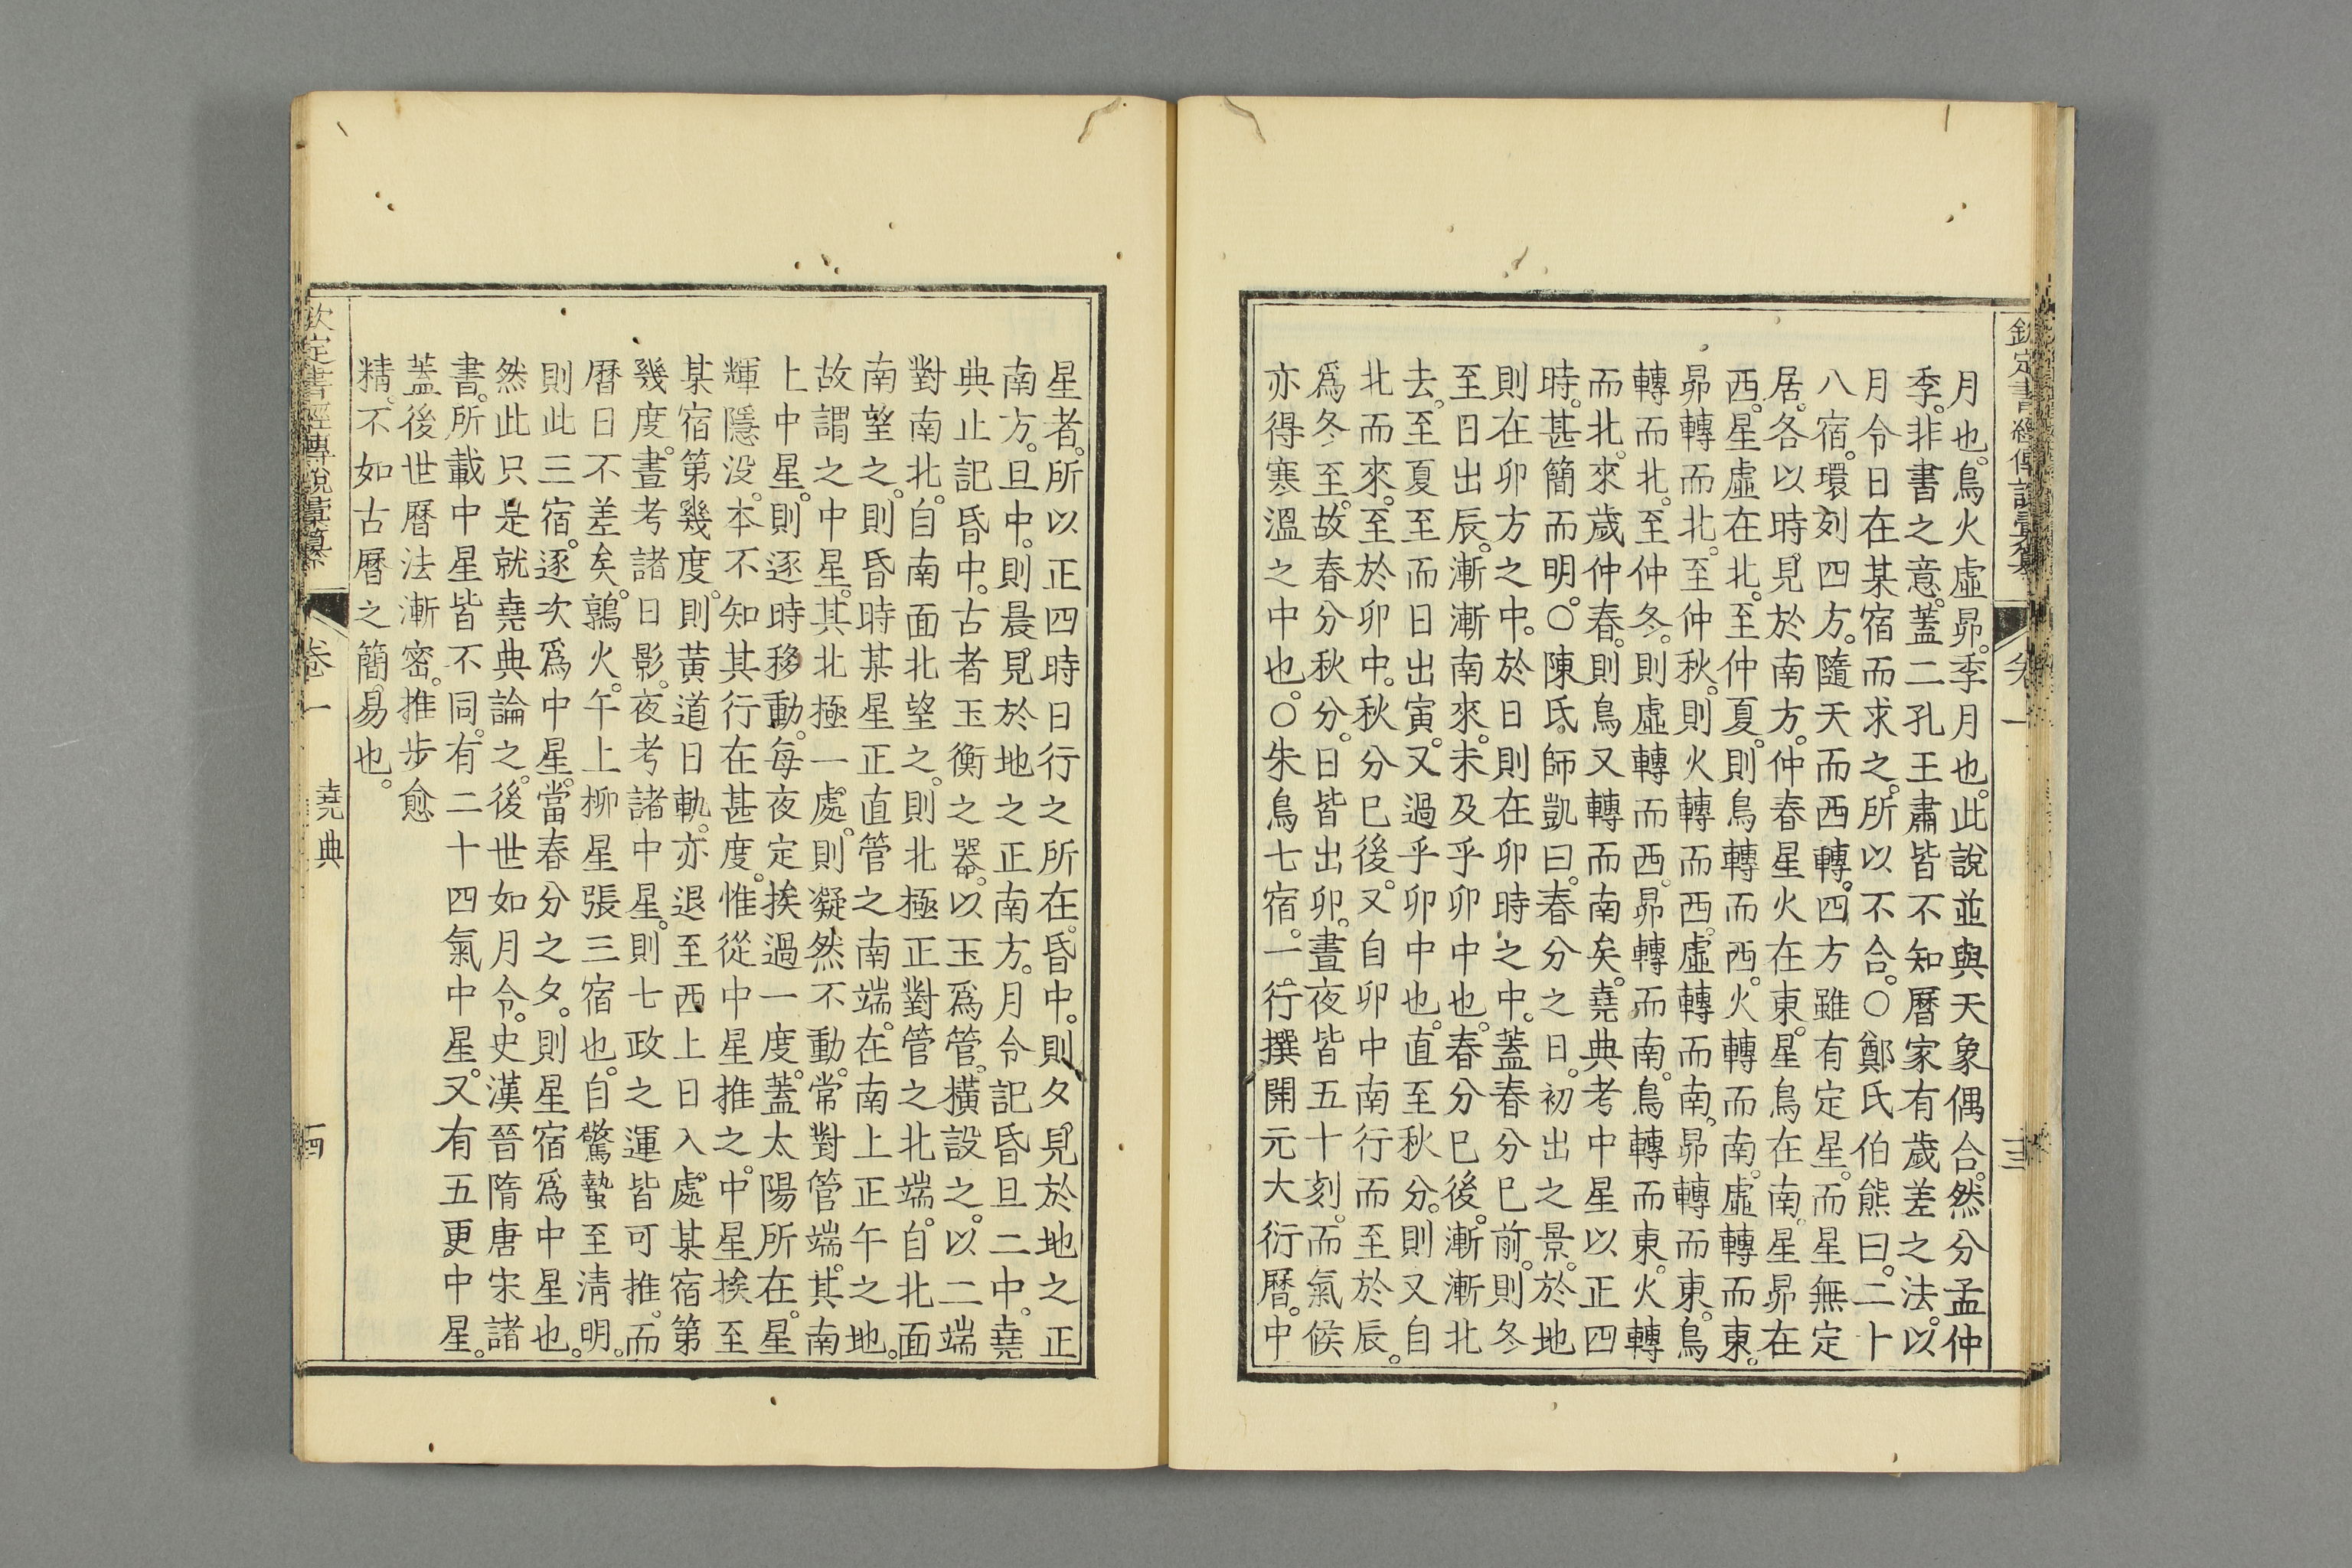 欽定書經傳說彙纂
卷一
三
月也。鳥火虛昴。季月也。此說並與天象偶合。然分孟仲
季。非書之意。蓋二孔王肅皆不知曆家有歲差之法。以
月令日在某宿而求之。所以不合。○鄭氏伯熊曰。二十
八宿。環列四方。隨天而西轉。四方雖有定星。而星無定
居。各以時見於南方。仲春星火在東。星鳥在南。星昴在
西。星虛在北。至仲夏。則鳥轉而西。火轉而南。虛轉而東。
昴轉而北。至仲秋。則火轉而西。虛轉而南。昴轉而東。鳥
轉而北。至仲冬。則虛轉而西。昴轉而南。鳥轉而東。火轉
而北。來歲仲春。則鳥又轉而南矣。堯典考中星以正四
時。甚簡而明。○陳氏師凱曰。春分之日。初出之景。於地
則在卯方之中。於日則在卯時之中。蓋春分巳前。則冬
至日出辰。漸漸南來。未及乎卯中也。春分巳後。漸漸北
去。至夏至而日出寅。又過乎卯中也。直至秋分。則又自
北而來。至於卯中。秋分巳後。又自卯中南行而至於辰。
爲冬至。故春分秋分。日皆出卯。晝夜皆五十刻。而氣候
亦得寒溫之中也。○朱鳥七宿。一行撰開元大衍曆。中
星者。所以正四時日行之所在。昏中。則夕見於地之正
南方。旦中。則晨見於地之正南方。月令記昏旦二中。堯
典止記昏中。古者玉衡之器。以玉爲管。橫設之。以二端
對南北。自南面北望之。則北極正對管之北端。自北面
南望之。則昏時某星正直管之南端。在南上正午之地。
故謂之中星。其北極一處。則凝然不動。常對管端。其南
上中星。則逐時移動。每夜定挨過一度。蓋太陽所在。星
輝隱没。本不知其行在甚度。惟從中星推之。中星挨至
某宿第幾度。則黃道日軌。亦退至西上日入處某宿第
幾度。晝考諸日影。夜考諸中星。則七政之運皆可推。而
曆日不差矣。鶉火。午上柳星張三宿也。自驚蟄至淸明。
則此三宿。逐次爲中星。當春分之夕。則星宿爲中星也。
然此只是就堯典論之。後世如月令。史漢晉隋唐宋諸
書。所載中星皆不同。有二十四氣中星。又有五更中星。
蓋後世曆法漸密。推步愈
精。不如古曆之簡易也。
欽定書經傳說彙纂
卷一
堯典
四